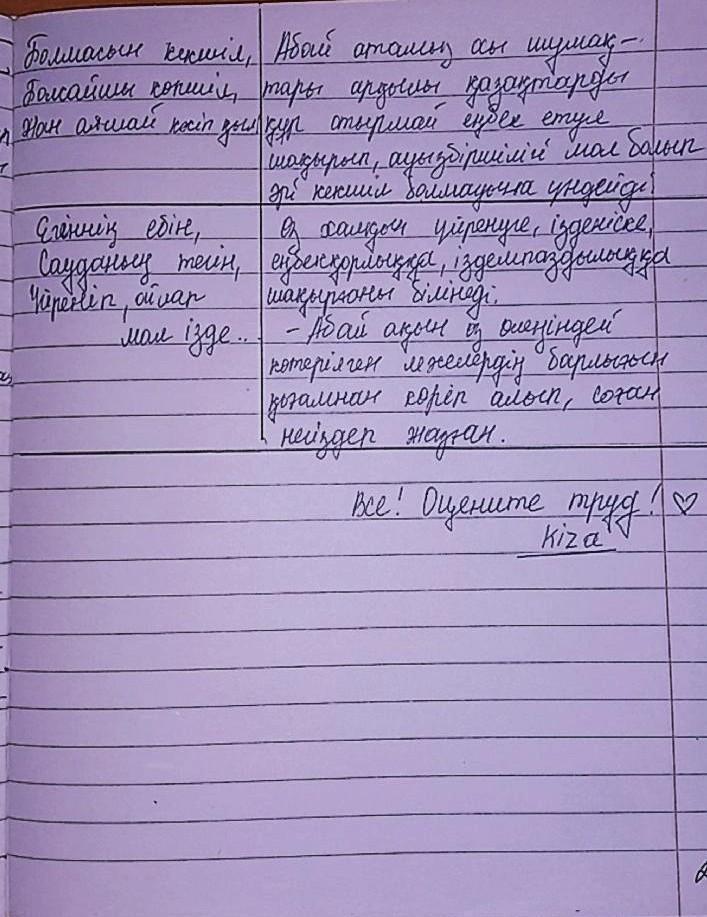 Болмасын кекшіл,
Болсайшы көпшіл,
Жан аямай кәсіп қыл
Абай атамыз осы шумақ-
тары арқылы қазақтарды
құр отырмай еңбек етуге
шақырып, ауызбіршілігі мол болып
әрі кекшіл болмауына үндейді.
Егіннің ебін,
Сауданың тегін,
Үйреніп, ойлап
мал ізде..
Өз халқын үйренуге, ізденіске,
еңбекқорлыққа, іздемпаздылыққа
шақырғаны білінеді.
- Абай ақын өз өлеңіндей
көтерілген мәселердің барлығын
қоғамнан көріп алып, соған
негіздеп жазған.
Все! Оцените труд! ♡
Kiza